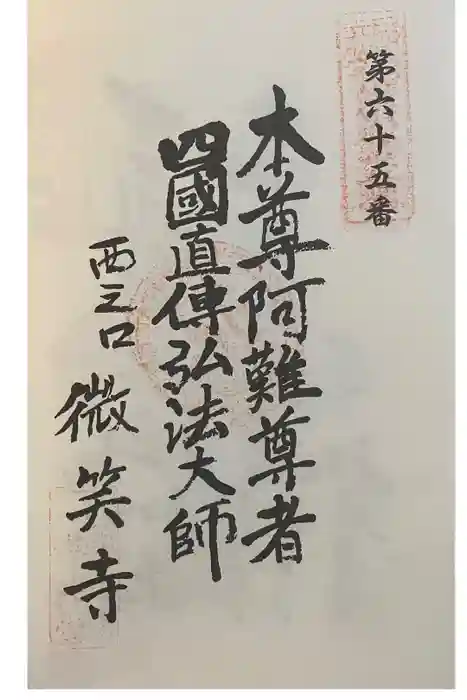 第六十五番
本尊阿難尊者
四國直傳弘法大師
西之口
微笑寺